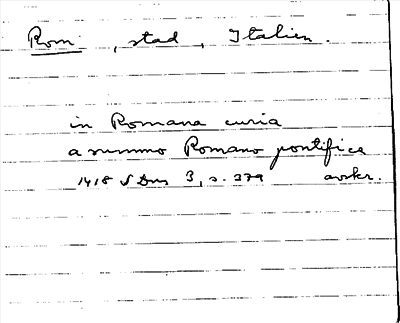 Rom, stad, Italien.
in Romana curia
a summo Romano pontifice
1418 SDns 3, s. 379 avskr.